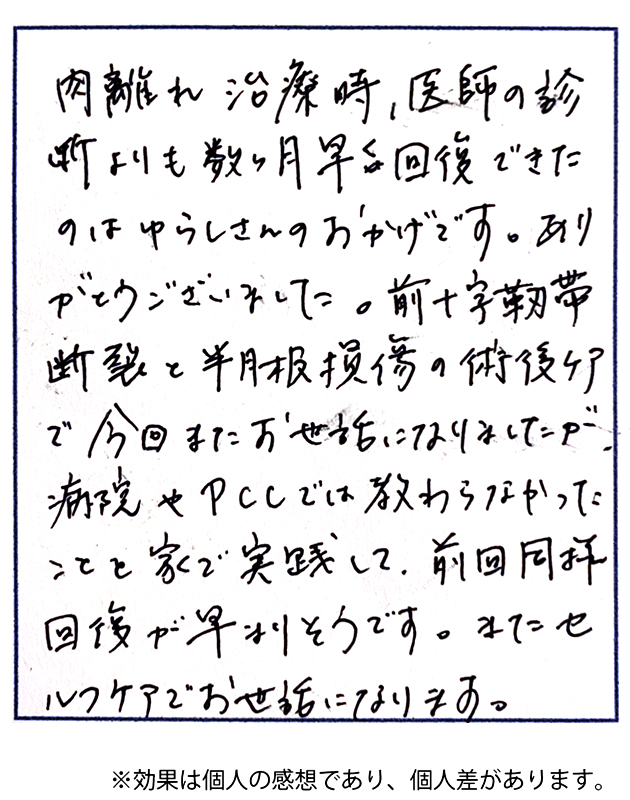 肉離れ治療時、医師の診
断よりも数ヶ月早く回復できた
のはゆらしさんのおかげです。あり
がとうございました。前十字靭帯
断裂と半月板損傷の術後ケア
で今回またお世話になりましたが、
病院やPCCでは教わらなかった
ことを家で実践して、前回同様
回復が早まりそうです。またセ
ルフケアでお世話になります。
※効果は個人の感想であり、個人差があります。